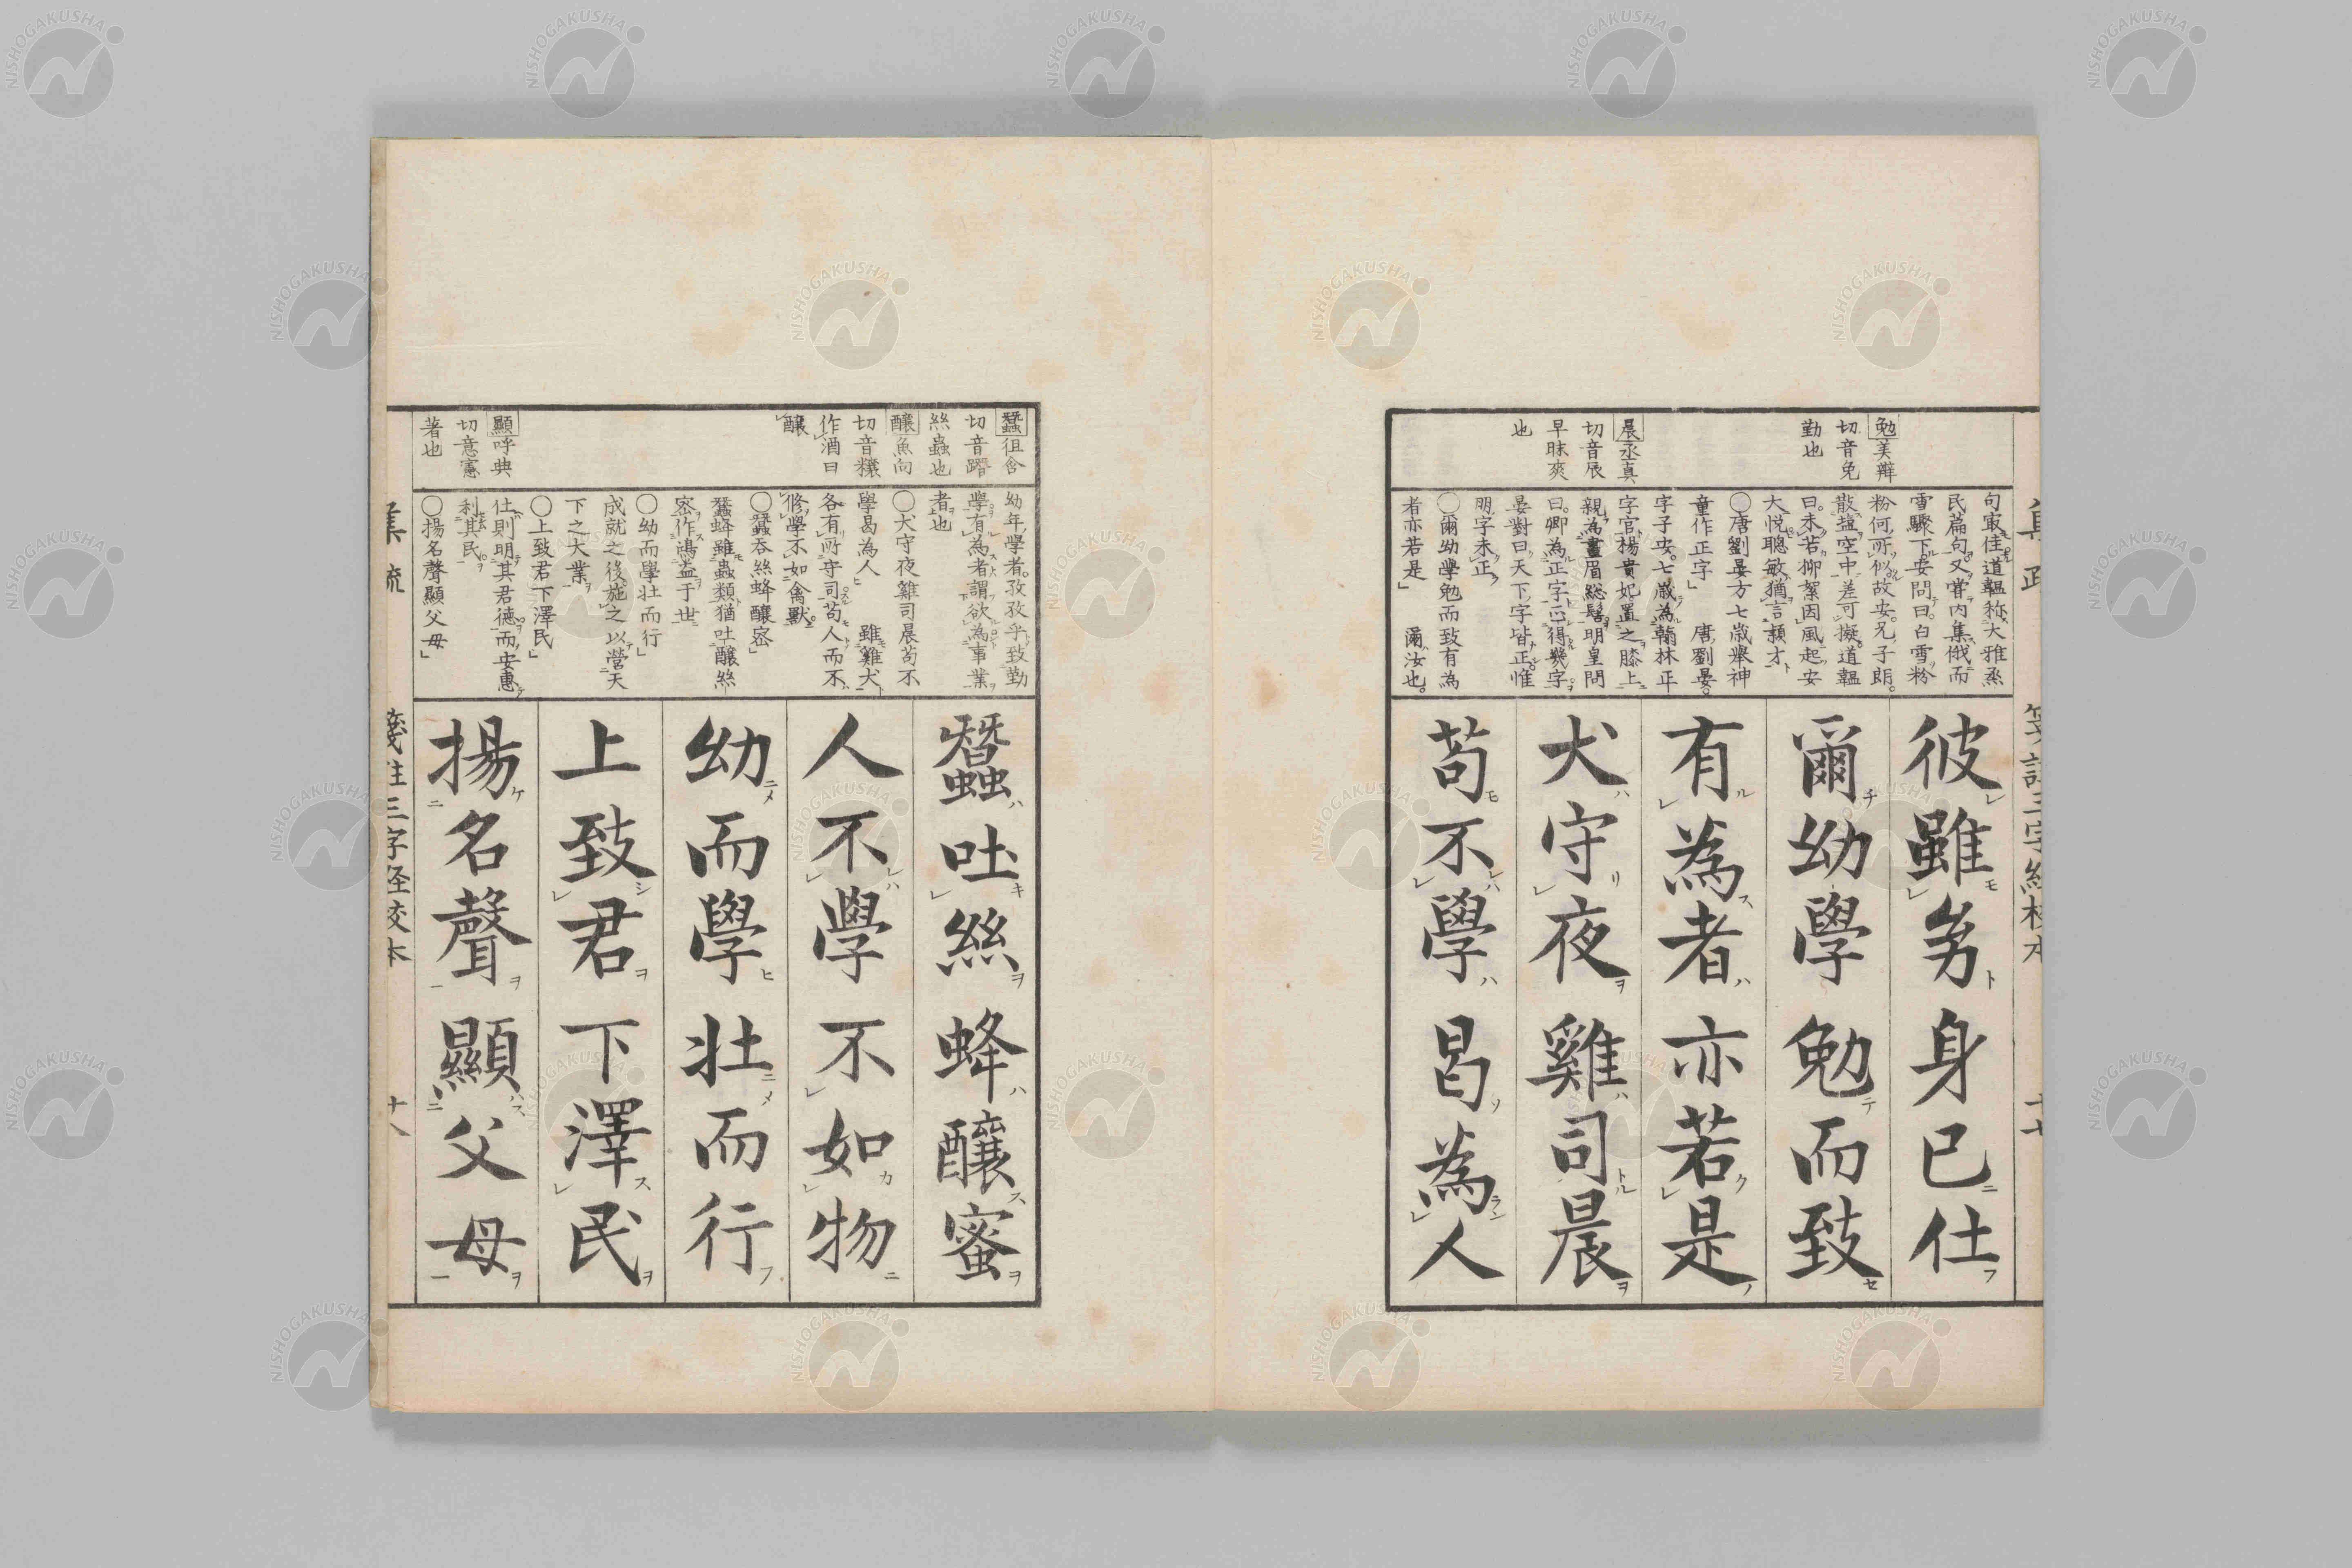 勉美辯
切音免
勤也
晨丞真
切音辰
早昧爽
也
句最佳道轀称大雅烝
民篇句又嘗内集俄而
雪驟下安問曰白雪粉
粉何所似故安兄子朗
散塩空中差可擬道轀
曰未若柳絮因風起安
大悦聰敏猶言穎才
〇唐劉晏方七歳舉神
童作正字」 唐劉晏
字子安七歳為翰林正
字官楊貴妃置之膝上
親為畫眉総髻明皇問
曰卿為正字正得幾字
晏對曰天下字皆正惟
朋字未正
〇爾幼學勉而致有為
者亦若是」 爾汝也
彼雖㓜身已仕
爾幼學勉而致
有為者亦若是
犬守夜雞司晨
苟不學曷為人
蠶徂含
切音蹭
絲蟲也
釀魚向
切音糷
作酒曰
釀
顯呼典
切意憲
著也
幼年學者孜孜乎致勤
學有為者謂欲為事業
者也
〇犬守夜雞司晨苟不
學曷為人 雖雞犬
各有所守司苟人而不
修學不如禽獸
〇蠶吞絲蜂釀密」
蠶蜂雖蟲類猶吐釀絲
密作鴻益于世
〇幼而學壮而行」
成就之後施之以營天
下之大業
〇上致君下澤民」
仕則明其君德而安惠
利其民
〇揚名聲顯父母」
蠶吐絲蜂釀蜜
人不學不如物
幼而學壮而行
上致君下澤民
揚名聲顯父母
箋註三字経校本 十八
NISHOGAKUSHA